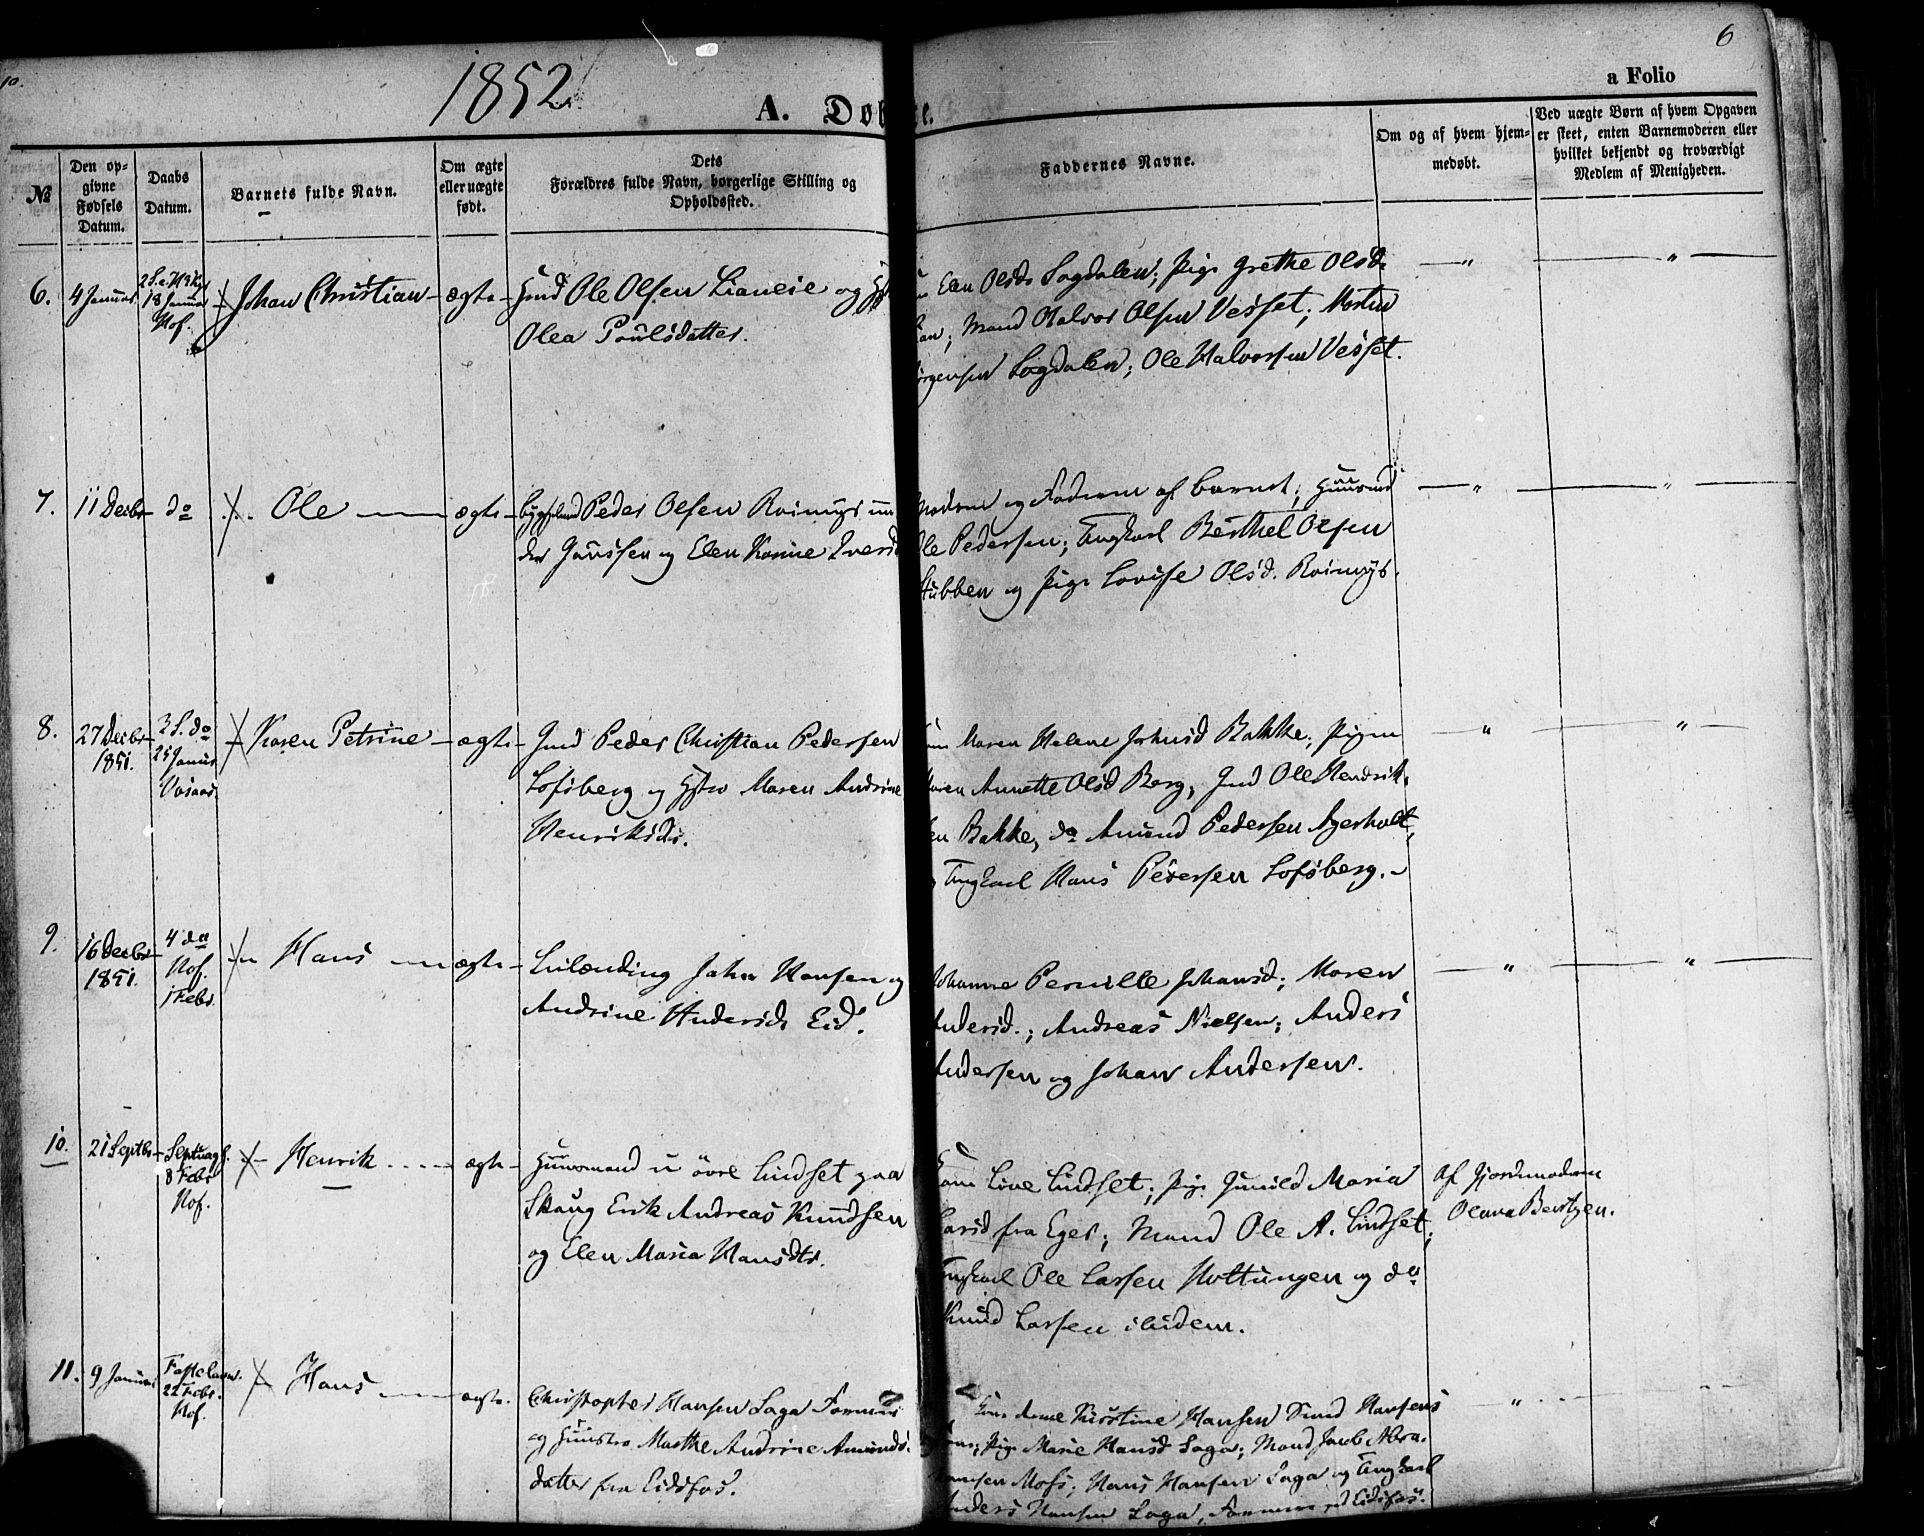 10.
1852
6
A. Døb te.
a Folio
№
Den op-
givne
Fødsels
Datum.
Daabs
Datum.
Barnets fulde Navn.
Om ægte
eller uægte
født.
Dets
Forældres fulde Navn, borgerlige Stilling og
Opholdssted.
Faddernes Navne.
Om og af hvem hjem-
medøbt.
Ved uægte Børn af hvem Opgaven
er skeet, enten Barnemoderen eller
hvilket bekjendt og troværdigt
Medlem af Menigheden.
6.
4 Januar
18 Januar
Hof.
Johan Christian
ægte
Gmd Ole Olsen Lianeie og
Olea Poulsdatter.
Elen Olsd. Sogdalen; Pige Grethe Olsd.
Mand Halvor Olsen Vesset; Morten
Jørgensen Sogdalen; Ole Halvorsen Vesset.
"
"
7.
11 Decbr
do
Ole
ægte
Peder Olsen Reimyr un
der og Elen Karine Iversd
Modren og Fadren af Barnet; Huusmd
Ole Pedersen; Ungkarl Berthel Olsen
Stubben og Pige Lovise Olsd. Reimyr.
"
"
8.
27 Decbr
1851.
3 S. do
25 Januar
Vasaas.
Karen Petrine
ægte
Gmd Peder Christian Pedersen
Lofsberg og Hstro Maren Andrine
Henriksdr.
Maren Helene Johnsd Bakke; Pigen
Maren Annette Olsd Berg, Gmd Ole Hendrik-
sen Bakke, do Amund Pedersen Agerholt,
Ungkarl Hans Pedersen Lofsberg.
"
"
9.
16 Decbr
1851.
4 do
Hof.
1 Febr.
Hans
ægte
John Hansen og
Andrine Andersdr Eid.
Johanne Pernille Johansd; Maren
Andersd.; Andreas Nielsen; Anders
Andersen og Johan Andersen.
"
"
10.
21 Septbr
Septuag.
8 Febr
Hof.
Henrik
ægte
Huusmand u øvre Lindset paa
Skoug Erik Andreas Knudsen
og Elen Maria Hansdtr.
Kone Live Lindset; Pige Gunild Maria
Larsd fra Eger; Mand Ole A. Lindset;
Ungkarl Ole Larsen Hottungen og do
Knud Larsen ibidem.
Af Gjordmodren
Olava Bentzen.
11.
9 Januar
Fastelavn.
22 Febr.
Hof.
Hans
ægte.
Christopher Hansen Saga Former
og Huustro Marthe Andrine Amunds-
datter fra Eidsfos.
Kone Anne Kirstine Hansen Sund Hansens
Kone; Pige Marie Hansd Saga; Mand Jacob Abra-
hamsen Mofs; Hans Hansen Saga og Ungkarl
Anders Hansen Saga, Former ved Eidsfos.
"
"